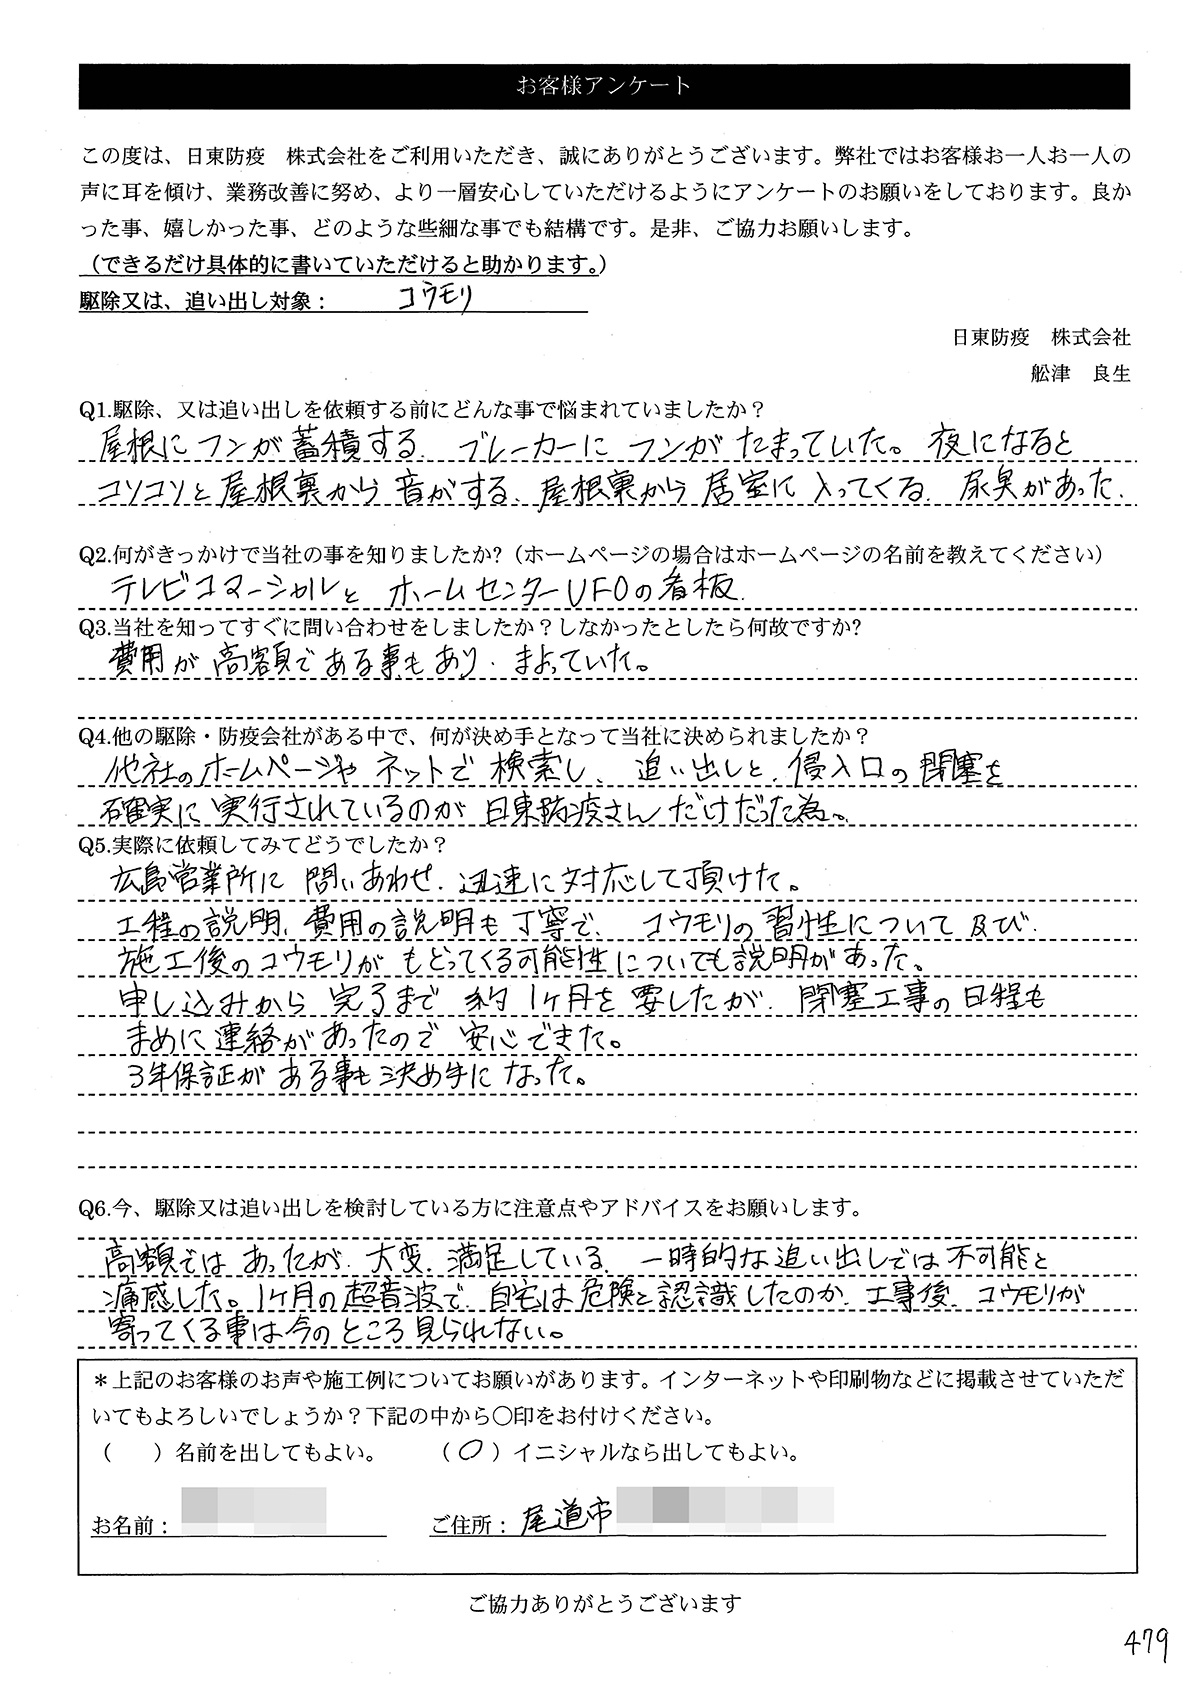 お客様アンケート
この度は、日東防疫　株式会社をご利用いただき、誠にありがとうございます。弊社ではお客様お一人お一人の
声に耳を傾け、業務改善に努め、より一層安心していただけるようにアンケートのお願いをしております。良か
った事、嬉しかった事、どのような些細な事でも結構です。是非、ご協力お願いします。
（できるだけ具体的に書いていただけると助かります。）
駆除又は、追い出し対象： コウモリ
日東防疫　株式会社
舩津　良生
Q1.駆除、又は追い出しを依頼する前にどんな事で悩まれていましたか？
屋根にフンが蓄積する、ブレーカーにフンがたまっていた。夜になると
コソコソと屋根裏から音がする、屋根裏から居室に入ってくる、尿臭があった、
Q2.何がきっかけで当社の事を知りましたか?（ホームページの場合はホームページの名前を教えてください）
テレビコマーシャルと ホームセンターUFOの看板、
Q3.当社を知ってすぐに問い合わせをしましたか？しなかったとしたら何故ですか?
費用が高額である事もあり、まよっていた。
Q4.他の駆除・防疫会社がある中で、何が決め手となって当社に決められましたか？
他社のホームページやネットで検索し、追い出しと、侵入口の閉塞を
確実に実行されているのが日東防疫さんだけだった為。
Q5.実際に依頼してみてどうでしたか？
広島営業所に問いあわせ、迅速に対応して頂けた。
工程の説明、費用の説明も丁寧で、コウモリの習性について及び、
施工後のコウモリがもどってくる可能性についても説明があった。
申し込みから完了まで約1ヶ月を要したが、閉塞工事の日程も
まめに連絡があったので安心できた。
3年保証がある事も決め手になった。
Q6.今、駆除又は追い出しを検討している方に注意点やアドバイスをお願いします。
高額ではあったが、大変、満足している、一時的な追い出しでは不可能と
痛感した。1ヶ月の超音波で、自宅は危険と認識したのか、工事後、コウモリが
寄ってくる事は今のところ見られない。
＊上記のお客様のお声や施工例についてお願いがあります。インターネットや印刷物などに掲載させていただ
いてもよろしいでしょうか？下記の中から〇印をお付けください。
（　　）名前を出してもよい。　　（ 〇 ）イニシャルなら出してもよい。
お名前：　　ご住所： 尾道市
ご協力ありがとうございます
479